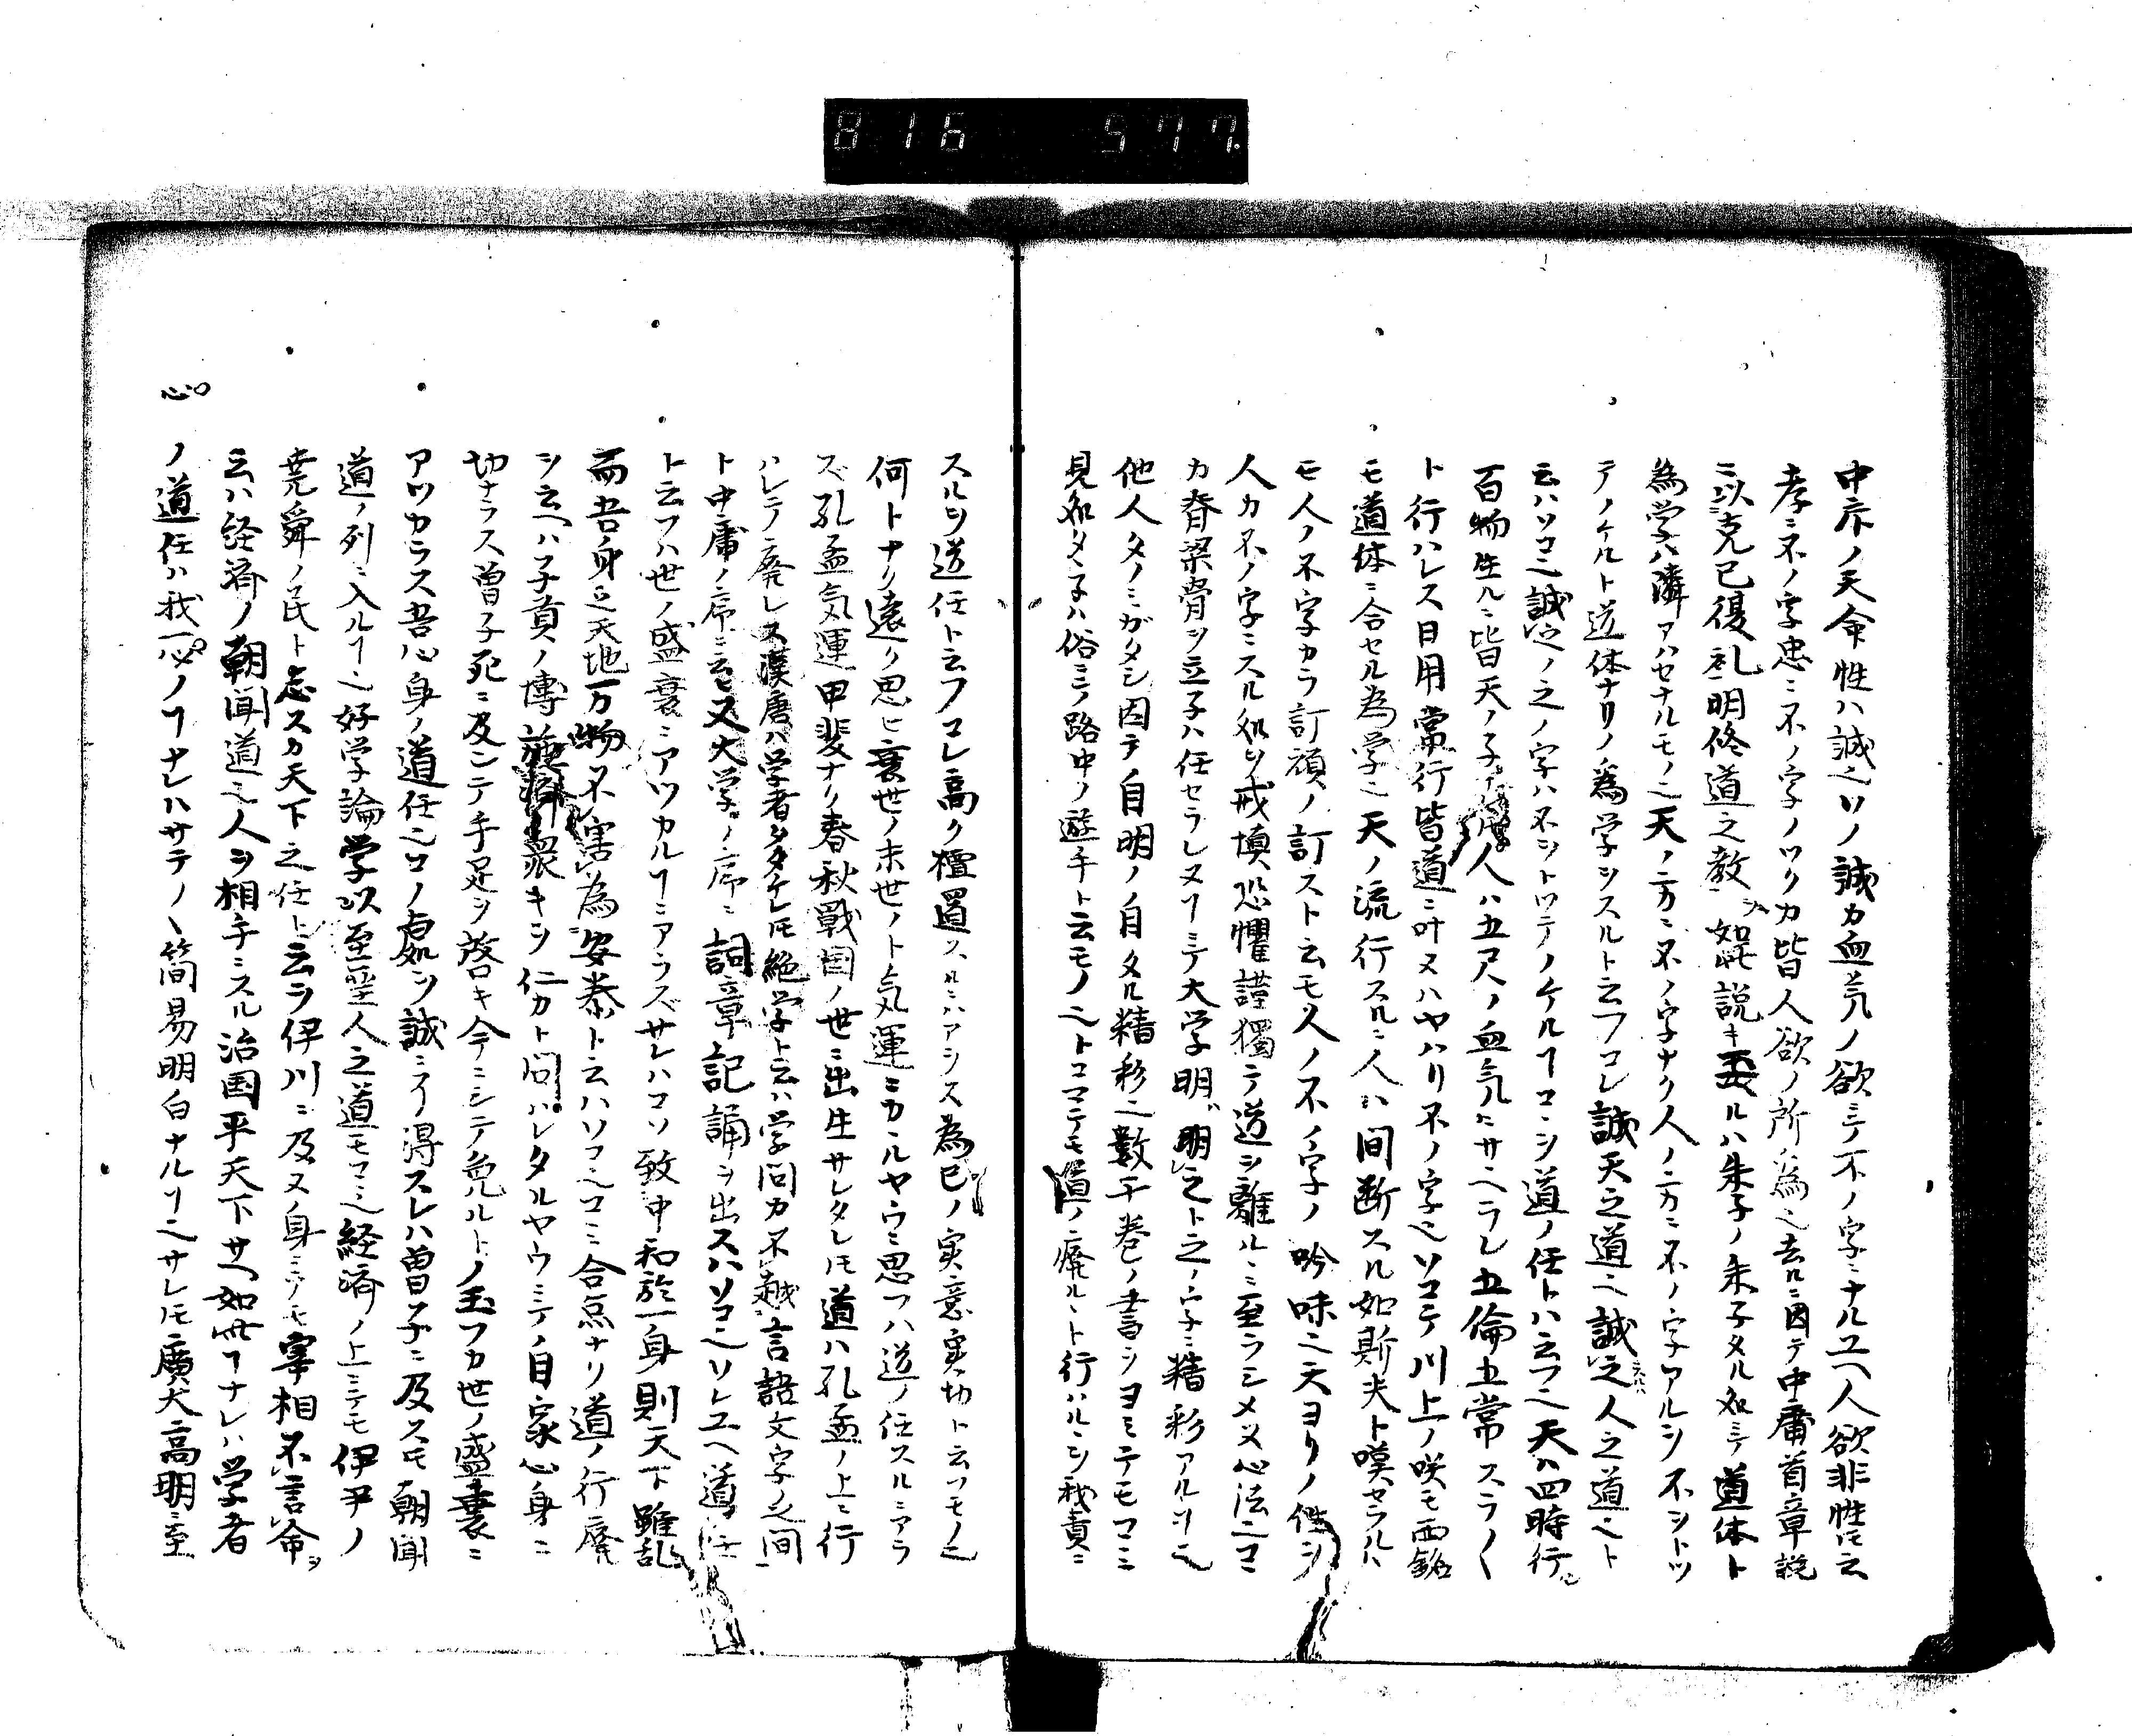 816 577.
中庸ノ天命性ハ誠之ソノ誠カ血気ノ欲ニテ不ノ字ニナルユヘ人欲非性ㇳモ云
孝ニ不ノ字忠ニ不ノ字ノツクカ皆人欲ノ所為也去ルニ因テ中庸首章説
ニ以克已復礼明修道之教ヲ如此説キ玉ルハ朱子ノ朱子タル処ニテ道体ト
為学ハ隣アハセナルモノ也天ノ方ニ不ノ字ナク人ノ方ニ不ノ字アルヲ不ヲトツ
テノケルト道体ナリノ為学ヲスルト云フコレ誠天之道也誠之人之道也ト
云ハソコ也誠之ノ之ノ字ハ不ヲトツテノケルヿコヽヲ道ノ任トハ云フ也天ハ四時行レ
百物生ルニ皆天ノ子人ハ五尺ノ血気ニサヘラレ五倫五常スラ〳〵
ト行ハレス日用常行皆道ニ叶ヌハヤハリ不ノ字也ソコテ川上ノ咲モ西銘
モ道体ニ合セル為学也天ノ流行スルニ人ハ間断スル如斯夫ト嘆セラルハ
モ人ノ不字カラ訂頑ノ訂ストムモ人ノ不ノ字ノ吟味也天ヨリノ性ヲ
人カ不ノ字ミスル処ヲ戒慎恐懼謹獨テ道ヲ離ルヽニ至ラシメヌ心法也コヽ
カ脊梁骨ヲ立子ハ任セラレヌヿミテ大学明明之ト之ノ字ニ精彩アルヿ也
他人タノミガタシ因テ自明ノ自タル精彩也數千巻ノ書ヲヨミテモコヽニ
見処タヽ子ハ俗ニ云路中ノ遊手ト云モノ也トコマテモ道ノ廃ルヽト行ハルヽヲ我責ニ
スルヲ道任ト云フコレ高ク檀置スルニハアラス為已ノ実意実切ト云フモノ也
何トナリ遠ク思ヒ衰世ノ末世ノト気運ニカヽルヤウニ思フハ道ノ任スルニアラ
ズ孔孟気運甲斐ナク春秋戰国ノ世ニ出生サレタレㇳモ道ハ孔孟ノ上ニ行
ハレテ廃レス漢唐ハ学者タタケレㇳモ絶学ト云ハ学問カ不越言語文字之間
ト中庸ノ序ニ云ヒ又大学ノ序ニ詞章記誦ヲ出スハソコ也ソレユヘ道ノ任
ト云フハ世ノ盛衰ニアツカルヿニアラズサレハコソ致中和於一身則天下雖乱
而吾身之天地万物不害為安泰ト云ハソコ也コヽニ合点ナリ道ノ行廃
ヲ云ヘハ子貢ノ博施濟衆キヲ仁カト問ハレタルヤウミテノ自家心身ニ
切ナラス曽子死ニ及ンテ手足ヲ啓キ今ニシテ免ルトノ玉フカ世ノ盛衰ニ
アツカラス吾心身ノ道任也コノ處ヲ誠ニ得スレハ曽子ニ及スㇳモ朝聞
道ノ列ニ入ルヿ也好学論学以至聖人之道モコヽ也経済ノ上ミテモ伊尹ノ
尭舜ノ民ト為スカ天下之任ト云ヲ伊川ニ及ヌノ身ミテモ宰相不言命ヲ
云ハ経済ノ朝聞道也人ヲ相手ニスル治国平天下サヘ如此ヿナレハ学者
ノ道任ハ我一心ノヿナレハサテノ〳〵簡易明白ナルヿ也サレㇳモ廣大高明ニ至
心